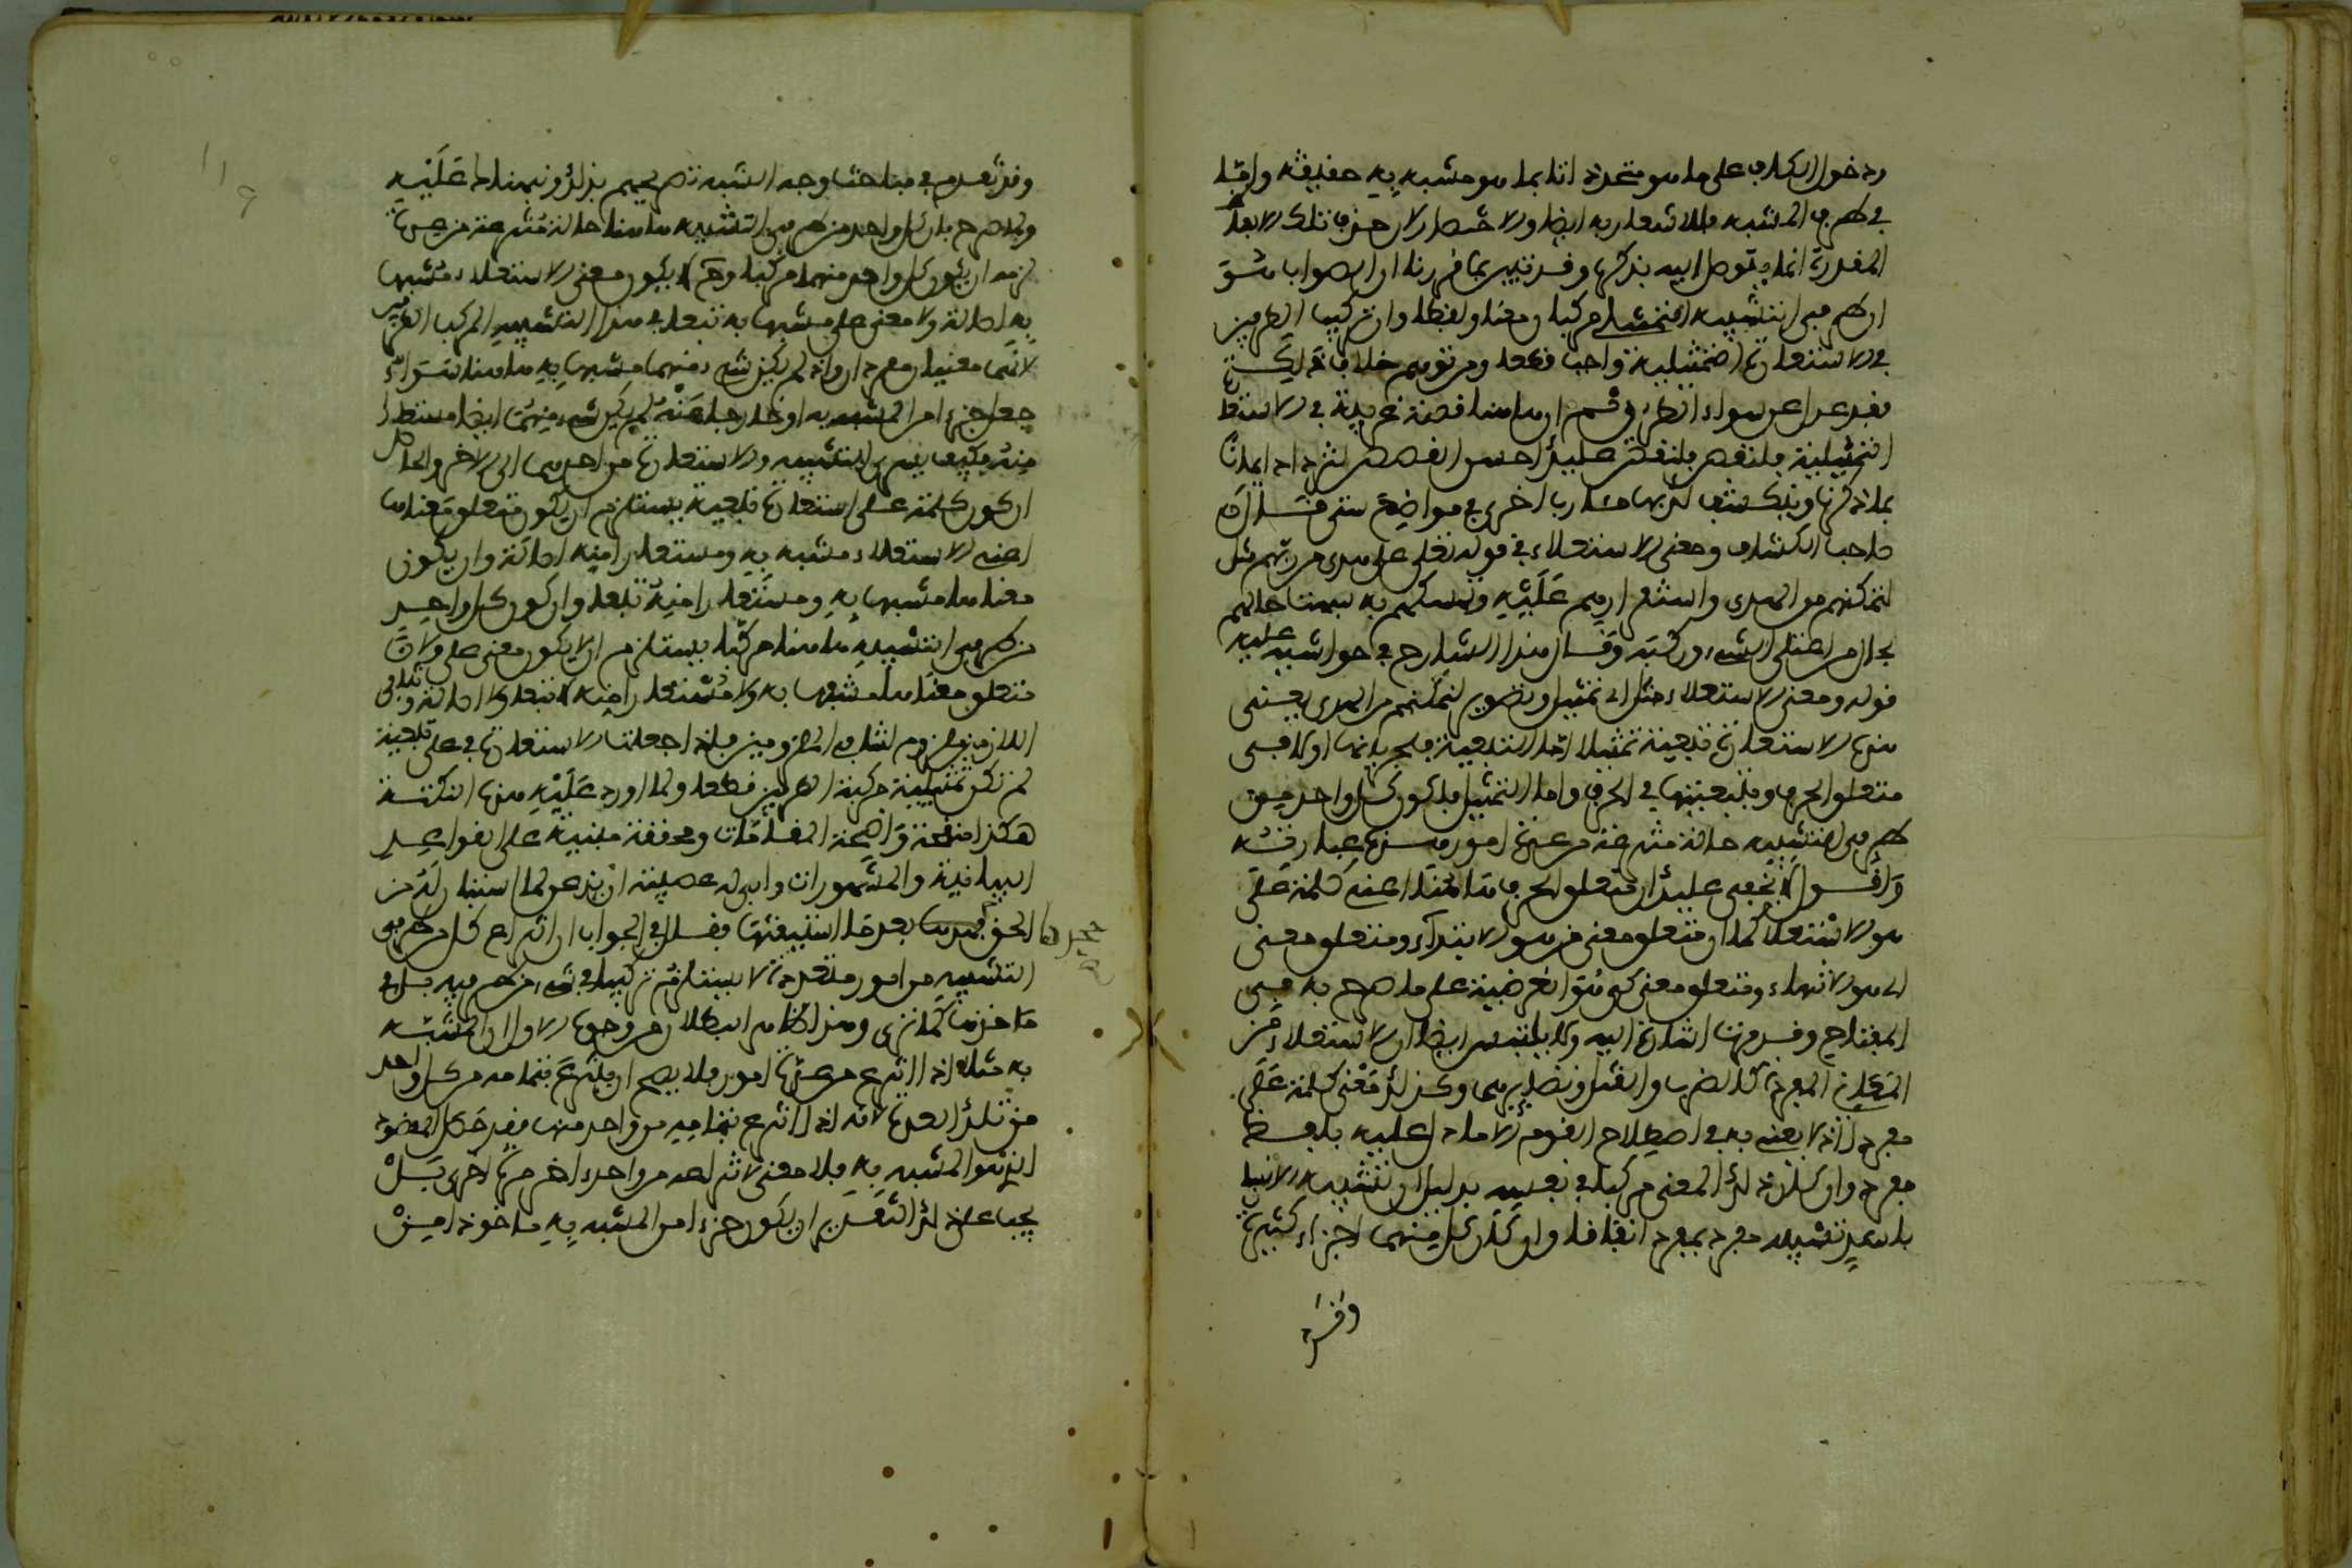 ودخول الكاف على ما هو متعدد انما يما هو مشبه به حقيقة واما
في طرف المشبه فلا اشعار به ايضا والاحتياج الى حذف تلك الالفاظ
المقدرة انما يتوصل اليه بذكرها وقد تبين بما قررنا ان الصواب هو
ان طرفي التشبيه التمثيلي مركبا ومعنا ولفظا وان تركيب الطرفين
في الاستعارة التمثيلية واجب قطعا ومن توهم خلاف ذلك
فقد عدل عن سواء الطريق ثم ان هاهنا قصة غريبة في الاستعارة
التمثيلية فلنقص عليك احسن القصص لتزداد ايمانا
بما ذكرنا وينكشف لك بها مآرب اخرى في مواضع شتى قال
صاحب الكشاف ومعنى الاستعلاء في قوله تعالى على هدى من ربهم مثل
لتمكنهم من الهدى واستقرارهم عليه وتمسكهم به شبهت حالهم
بحال من اعتلى الشيء وركبه وقال هذا الشارح في حواشيه عليه
قوله ومعنى الاستعلاء مثل اي تمثيل وتصوير لتمكنهم من الهدى يعني
هذه الاستعارة تبعية تمثيلا اما التبعية فلجريانها اولا في
متعلق الحرف وتبعيتها في الحرف واما التمثيل فلكون كل واحد من
طرفي التشبيه حالة منتزعة من عدة امور هذه عبارته
واقول لا يخفى عليك ان متعلق الحرف هاهنا اعني كلمة على
هو الاستعلاء كما ان متعلق معنى من هو الابتداء ومتعلق معنى
الى هو الانتهاء ومتعلق معنى كي هو الغرضية على ما صرح به في
المفتاح وقد مرت اشارة اليه ولا يلتبس ايضا ان الاستعلاء من
المعاني المفردة كالضرب والقتل ونظايرهما وكذلك معنى كلمة على
مفرد اذ لا يعنى به في اصطلاح القوم الا ما دل عليه بلفظ
مفرد وان كان ذلك المعنى مركبا في نفسه بدليل ان تشبيه الانسان
بالاسد تشبيه مفرد بمفرد اتفاقا وان كان كل منهما اجزاء كثيرة
وقد
وقد تقدم في مباحث وجه الشبه تصريحهم بذلك ونبهناك عليه
ولما صرح بان كل واحد من طرفي التشبيه هاهنا حالة منتزعة من عدة
لزمه ان يكون كل واحد منهما مركبا وحينئذ لا يكون معنى الاستعلاء مشبها
به اصالة ولا معنى على مشبها به تبعا في هذا التشبيه المركب الطرفين
لانهما معنيان مفردان واذا لم يكن شيء منهما مشبها به هاهنا سواء
جعل جزءا من المشبه به او خارجا عنه لم يكن شيء منهما ايضا مستعارا
منه فكيف يسري التشبيه والاستعارة من احدهما الى الاخر والحاصل
ان كون كلمة على استعارة تبعية يستلزم ان يكون متعلق معناها
اعني الاستعلاء مشبها به ومستعارا منه اصالة وان يكون
معناها مشبها به ومستعارا منه تبعا وان كون كل واحد
من طرفي التشبيه هاهنا مركبا يستلزم ان لا يكون معنى على ولا
متعلق معناها مشبها به ولا مستعارا منه لا تبعا ولا اصالة وتنافي
اللازمين ملزوم لتنافي الملزومين فاذا جعلت الاستعارة في على تبعية
لم تكن تمثيلية مركبة الطرفين قطعا ولما اورد عليه هذه النكتة
هكذا منقحة واضحة المقدمات ومحققة مبنية على القواعد
البيانية والمشهورات وابى له عصبيته ان يذعن لما استبان له من
الحق بعد ما استيقنها فقال في الجواب ان انتزاع كل من طرفي
التشبيه من امور متعددة لا يستلزم تركيبا في شيء من طرفيه بل في
مآخذهما كما ترى وهذا ظاهر البطلان من وجوه الاول ان المشبه
به مثلا اذا انتزع من عدة امور فلا يصح ان ينتزع بتمامه من كل واحد
من تلك العدة لانه اذا انتزع بتمامه من واحد منها فقد حصل المقصود
الذي هو المشبه به فلا معنى لانتزاعه من واحد اخر مرة اخرى بل
يجب على ذلك التقدير ان يكون جزء من المشبه به ماخوذا من